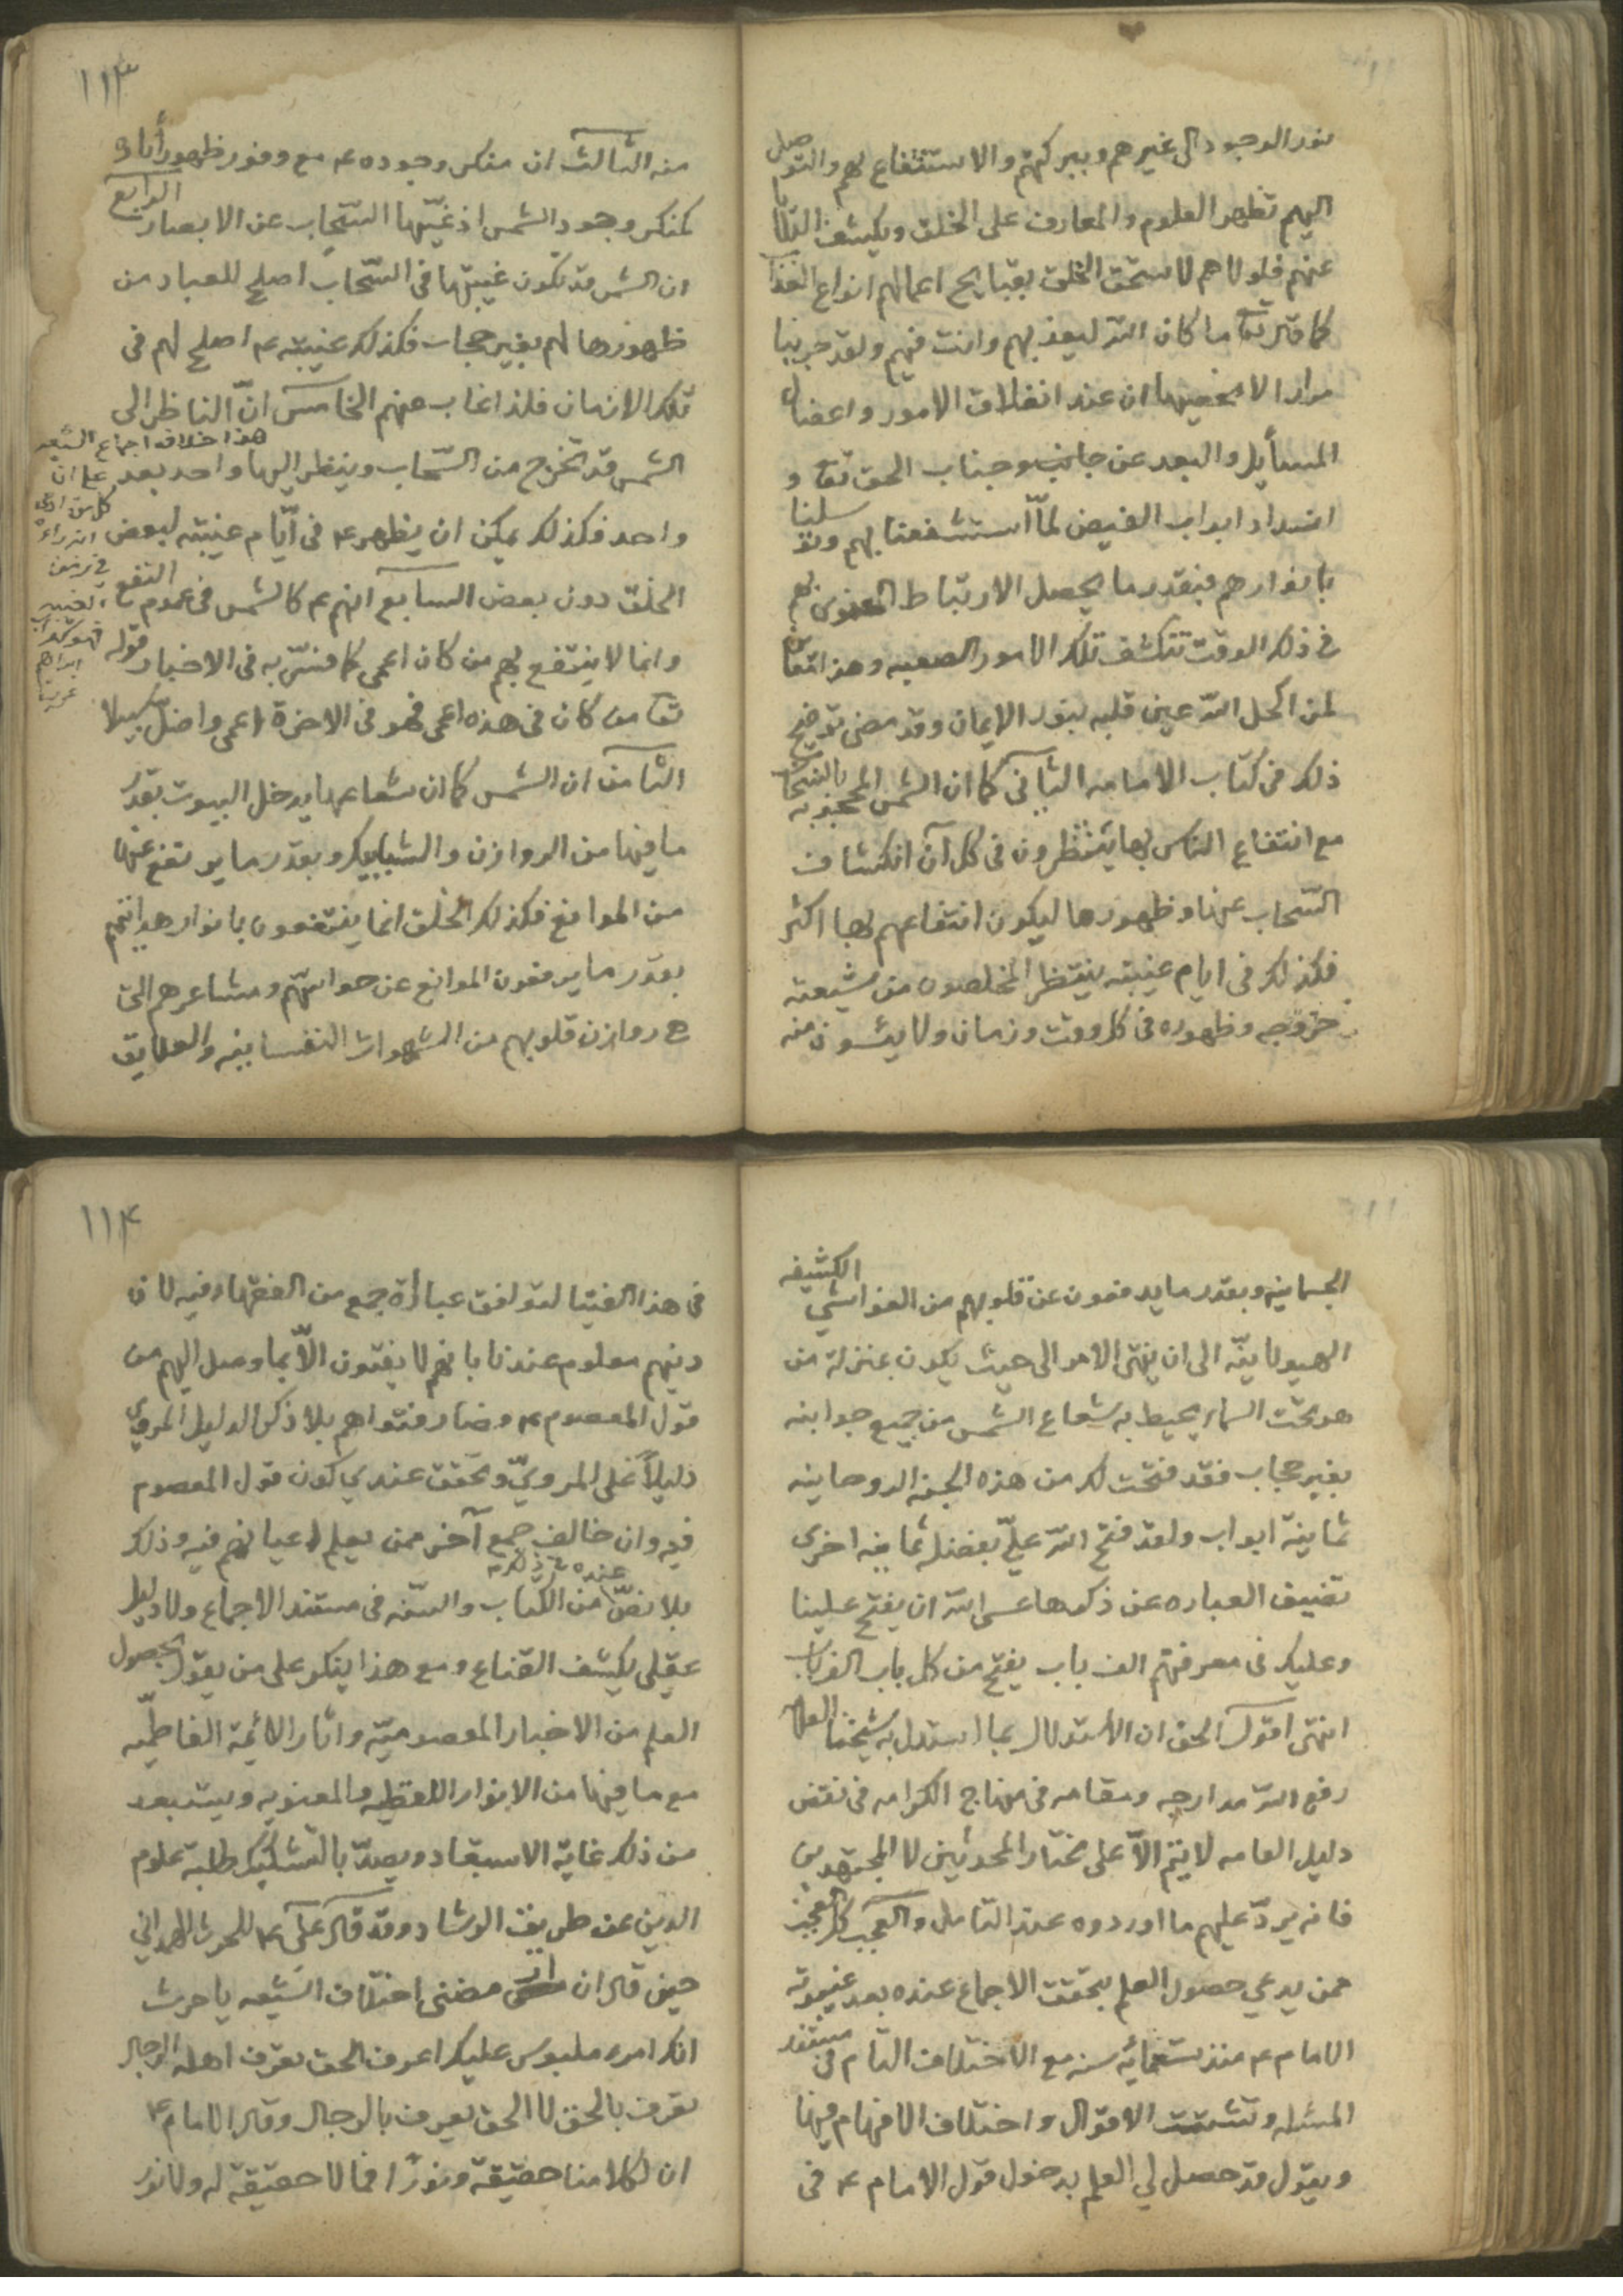 نور الوجود الى غيرهم وببركتهم والاستشفاع بهم والتوصل
اليهم تظهر العلوم والمعارف على الخلق ويكشف البلايا
عنهم فلولاهم لاستحق الخلق بقبايح اعمالهم انواع العذاب
كما قال تعا ما كان الله ليعذبهم وانت فيهم ولقد جربنا
مرارا لا نحصيها ان عند انغلاق الامور واعضال
المسأيل والبعد عن جانب وجناب الحق تعا و
انسداد ابواب الفيض لمّا استشفعنا بهم وتوسلنا
بانوارهم فبقدر ما يحصل الارتباط المعنوى بهم
في ذلك الوقت تنكشف تلك الامور الصعبه وهذا معاين
لمن اكحل الله عين قلبه بنور الايمان وقد مضى توضيح
ذلك فى كتاب الامامه الثانى كما ان الشمس المحجوبه بالسحاب
مع انتفاع الناس بها ينتظرون فى كل آن انكشاف
السّحاب عنها وظهورها ليكون انتفاعهم بها اكثر
فكذلك فى ايام غيبته ينتظر المخلصون من شيعته
خروجه وظهوره فى كل وقت وزمان ولا يئسون منه
١١٣
منه الثالث ان منكر وجوده ع مع وفور ظهور أثاره
كمنكر وجود الشمس اذ غيّبها السّحاب عن الابصار الرابع
ان الشمس قد تكون غيبتها فى السّحاب اصلح للعباد من
ظهورها لهم بغير حجاب فكذلك غيبته ع اصلح لهم فى
تلك الازمان فلذا غاب عنهم الخامس انّ الناظر الى
الشمس قد تخرج من السّحاب وينظر اليها واحد بعد
واحد فكذلك يمكن ان يظهر ع فى ايّام غيبته لبعض
الخلق دون بعض السابع انهم ع كالشمس فى عموم النفع
وانما لا ينتفع بهم من كان اعمى كما فسّر به فى الاخبار قوله
تعا من كان فى هذه اعمى فهو فى الاخرة اعمى واضلّ سبيلا
الثامن ان الشمس كما ان شعاعها يدخل البيوت بقدر
ما فيها من الروازن والشبابيك وبقدر ما يرتفع عنها
من الموانع فكذلك الخلق انما ينتفعون بانوار هدايتهم
بقدر ما يرفعون الموانع عن حواسّهم ومشاعرهم التى
ه روازن قلوبهم من الشهوات النفسانيه والعلايق
هذا خلاف اجماع الشيعه
على ان
كل من ادعى
انه راه
فى زمن
الغيبه
فهو كذاب
ابراهيم
الجسمانيه وبقدر ما يدفعون عن قلوبهم من الغواشي الكثيفه
الهيولانيّه الى ان ينتهى الامر الى حيث يكون بمنزلة من
هو تحت السماء يحيط به شعاع الشمس من جميع جوانبه
بغير حجاب فقد فتحت لك من هذه الجنه الروحانيه
ثمانية ابواب ولقد فتح الله عليّ بفضله ثمانيه اخرى
تضيق العباره عن ذكرها عسى الله ان يفتح علينا
وعليك فى معرفتهم الف باب يفتح من كل باب الف باب
انتهى اقول الحق ان الاستدلال بما استدل به شيخنا العلامه
رفع الله مدارجه ومقامه فى منهاج الكرامه فى نقض
دليل العامه لا يتم الاّ على مختار المحدثين لا المجتهدين
فانه يردّ عليهم ما اوردوه عند التامل والعجب كل العجب
ممن يدعي حصول العلم بتحقق الاجماع عنده بعد غيبوبة
الامام ع منذ تسعمائه سنه مع الاختلاف التام فى مستند
المسئله وتشتت الاقوال واختلاف الافهام فيها
ويقول قد حصل لي العلم بدخول قول الامام ع فى
١١٤
فى هذا الفتيا لتوافق عبارة جمع من الفقهاء فيه لان
دينهم معلوم عندنا بانهم لا يفتون الاّ بما وصل اليهم من
قول المعصوم ع وصار فتواهم بلا ذكر الدليل المروي
دليلاً على المرويّ وتحقق عندي كون قول المعصوم
فيه وان خالف جمع آخر ممن يعلم اعيانهم فيه وذلك
بلا نصّ من الكتاب والسّنه فى مستند الاجماع ولا دليل
عقلي يكشف القناع ومع هذا ينكر على من يقول بحصول
العلم من الاخبار المعصوميّه واثار الائمة الفاطميّه
مع ما فيها من الانوار اللفظيه والمعنويه ويستبعد
من ذلك غاية الاستبعاد ويصدّ بالتشكيك طلبة علوم
الدين عن طريق الرشاد وقد قال على ع للحرث الهمداني
حين قال ان مضنى اختلاف الشيعه يا حرث
انك امرء ملبوس عليك اعرف الحق تعرف اهله الرجال
تعرف بالحق لا الحق يعرف بالرجال وقال الامام ع
ان لكلامنا حقيقة ونورًا فما لا حقيقة له ولا نور